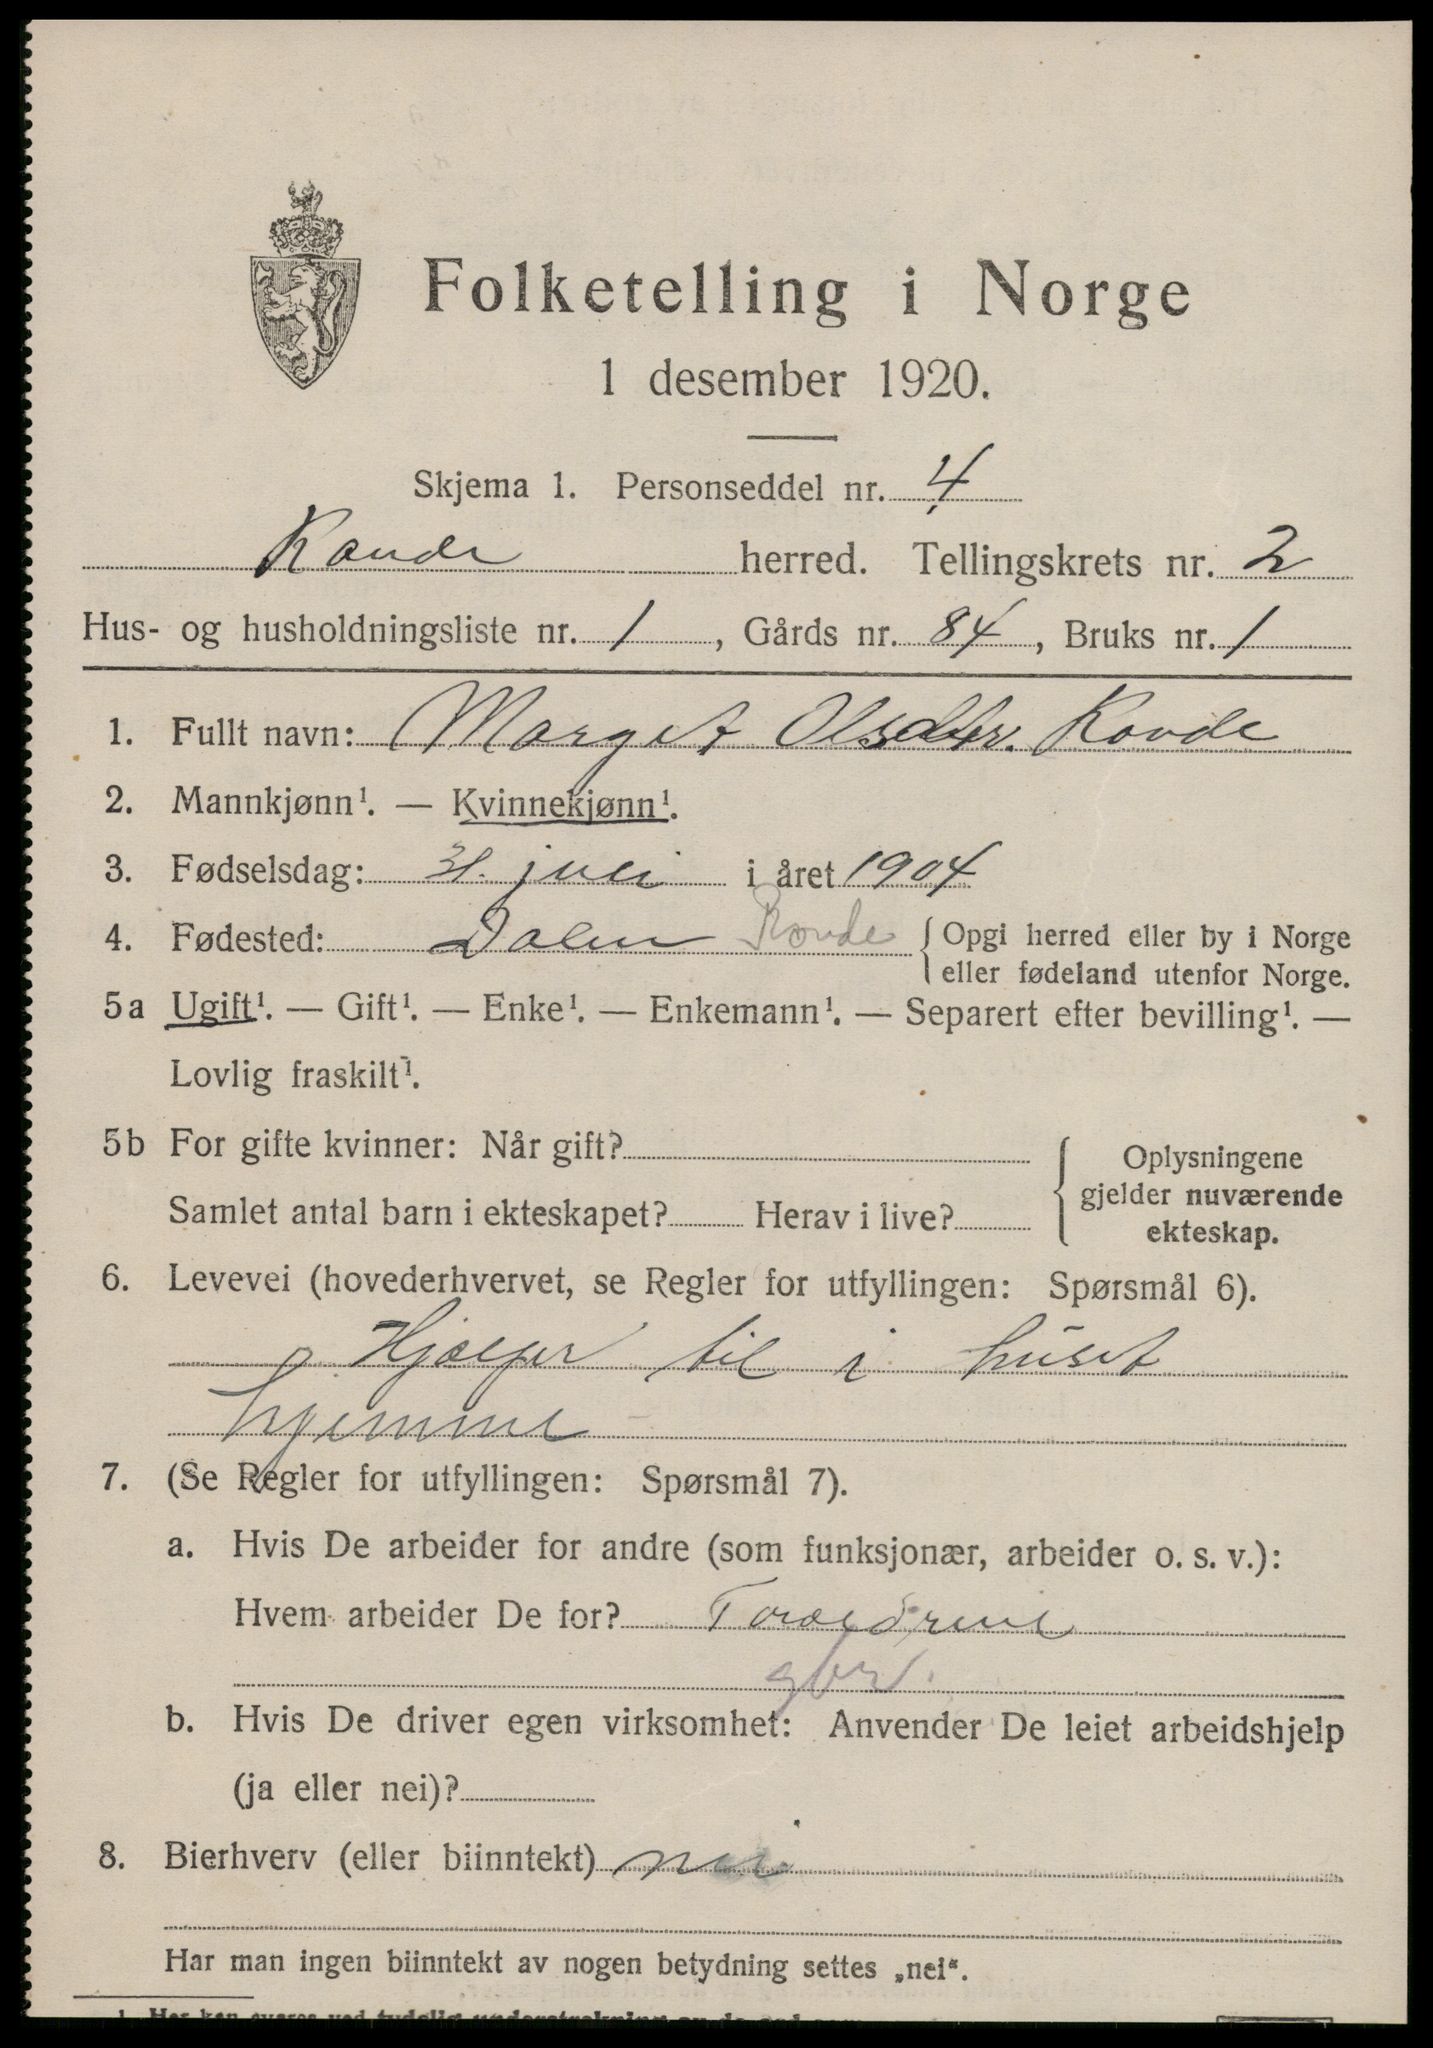 Folketelling i Norge
1 desember 1920.
Skjema 1. Personseddel nr. 4
Rovde herred. Tellingskrets nr. 2
Hus- og husholdningsliste nr. 1, Gårds nr. 84, Bruks nr. 1
1. Fullt navn: Marget Olsdtr. Rovde
2. Mannkjønn¹. — Kvinnekjønn¹.
3. Fødselsdag: 31. juli i året 1904
4. Fødested: Dalen Rovde { Opgi herred eller by i Norge
eller fødeland utenfor Norge.
5a Ugift¹. — Gift¹. — Enke¹. — Enkemann¹. — Separert efter bevilling¹. —
Lovlig fraskilt¹.
5b For gifte kvinner: Når gift?
Samlet antal barn i ekteskapet? Herav i live?
{ Oplysningene
gjelder nuværende
ekteskap.
6. Levevei (hovederhvervet, se Regler for utfyllingen: Spørsmål 6).
Hjælper til i huset
hjemme
7. (Se Regler for utfyllingen: Spørsmål 7).
a. Hvis De arbeider for andre (som funksjonær, arbeider o. s. v.):
Hvem arbeider De for? Foræærdrene
gbr.
b. Hvis De driver egen virksomhet: Anvender De leiet arbeidshjelp
(ja eller nei)?
8. Bierhverv (eller biinntekt) nei
Har man ingen biinntekt av nogen betydning settes „nei“.